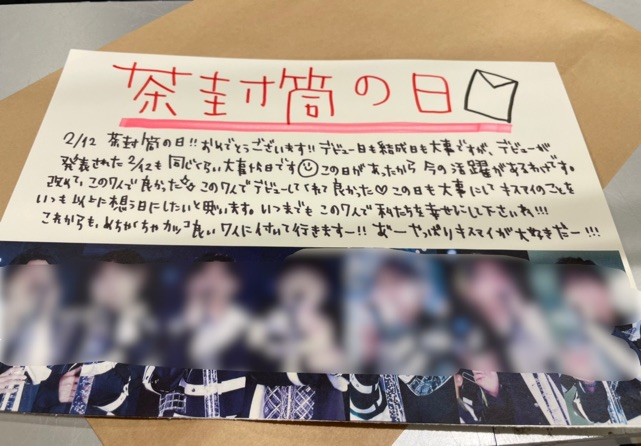 茶封筒の日
2/12 茶封筒の日!! おめでとうございます!! デビュー日も結成日も大事ですが、デビューが
発表された2/12も同じくらい大事な日です この日があったから 今の活躍があるわけです。
改めて、この7人で良かった このワ人でデビューしてくれて良かった♡ この日も大事にして キスマイのことを
いつも以上に想う日にしたいと思います。いつまでもこの7人で私たちを幸せにして下さいね!!!
これからも、めちゃくちゃカッコ良い 7人に付いて行きますー!! あーやっぱりキスマイが大好きだー!!!